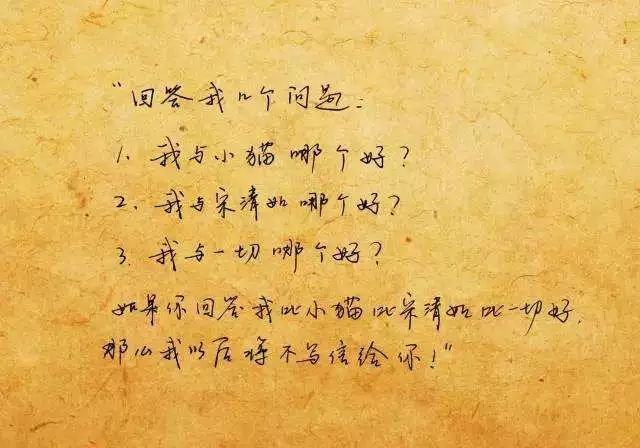 “回答我几个问题：
1. 我与小猫哪个好？
2. 我与宋清如哪个好？
3. 我与一切哪个好？
如果你回答我比小猫比宋清如比一切好，
那么我以后将不写信给你！”